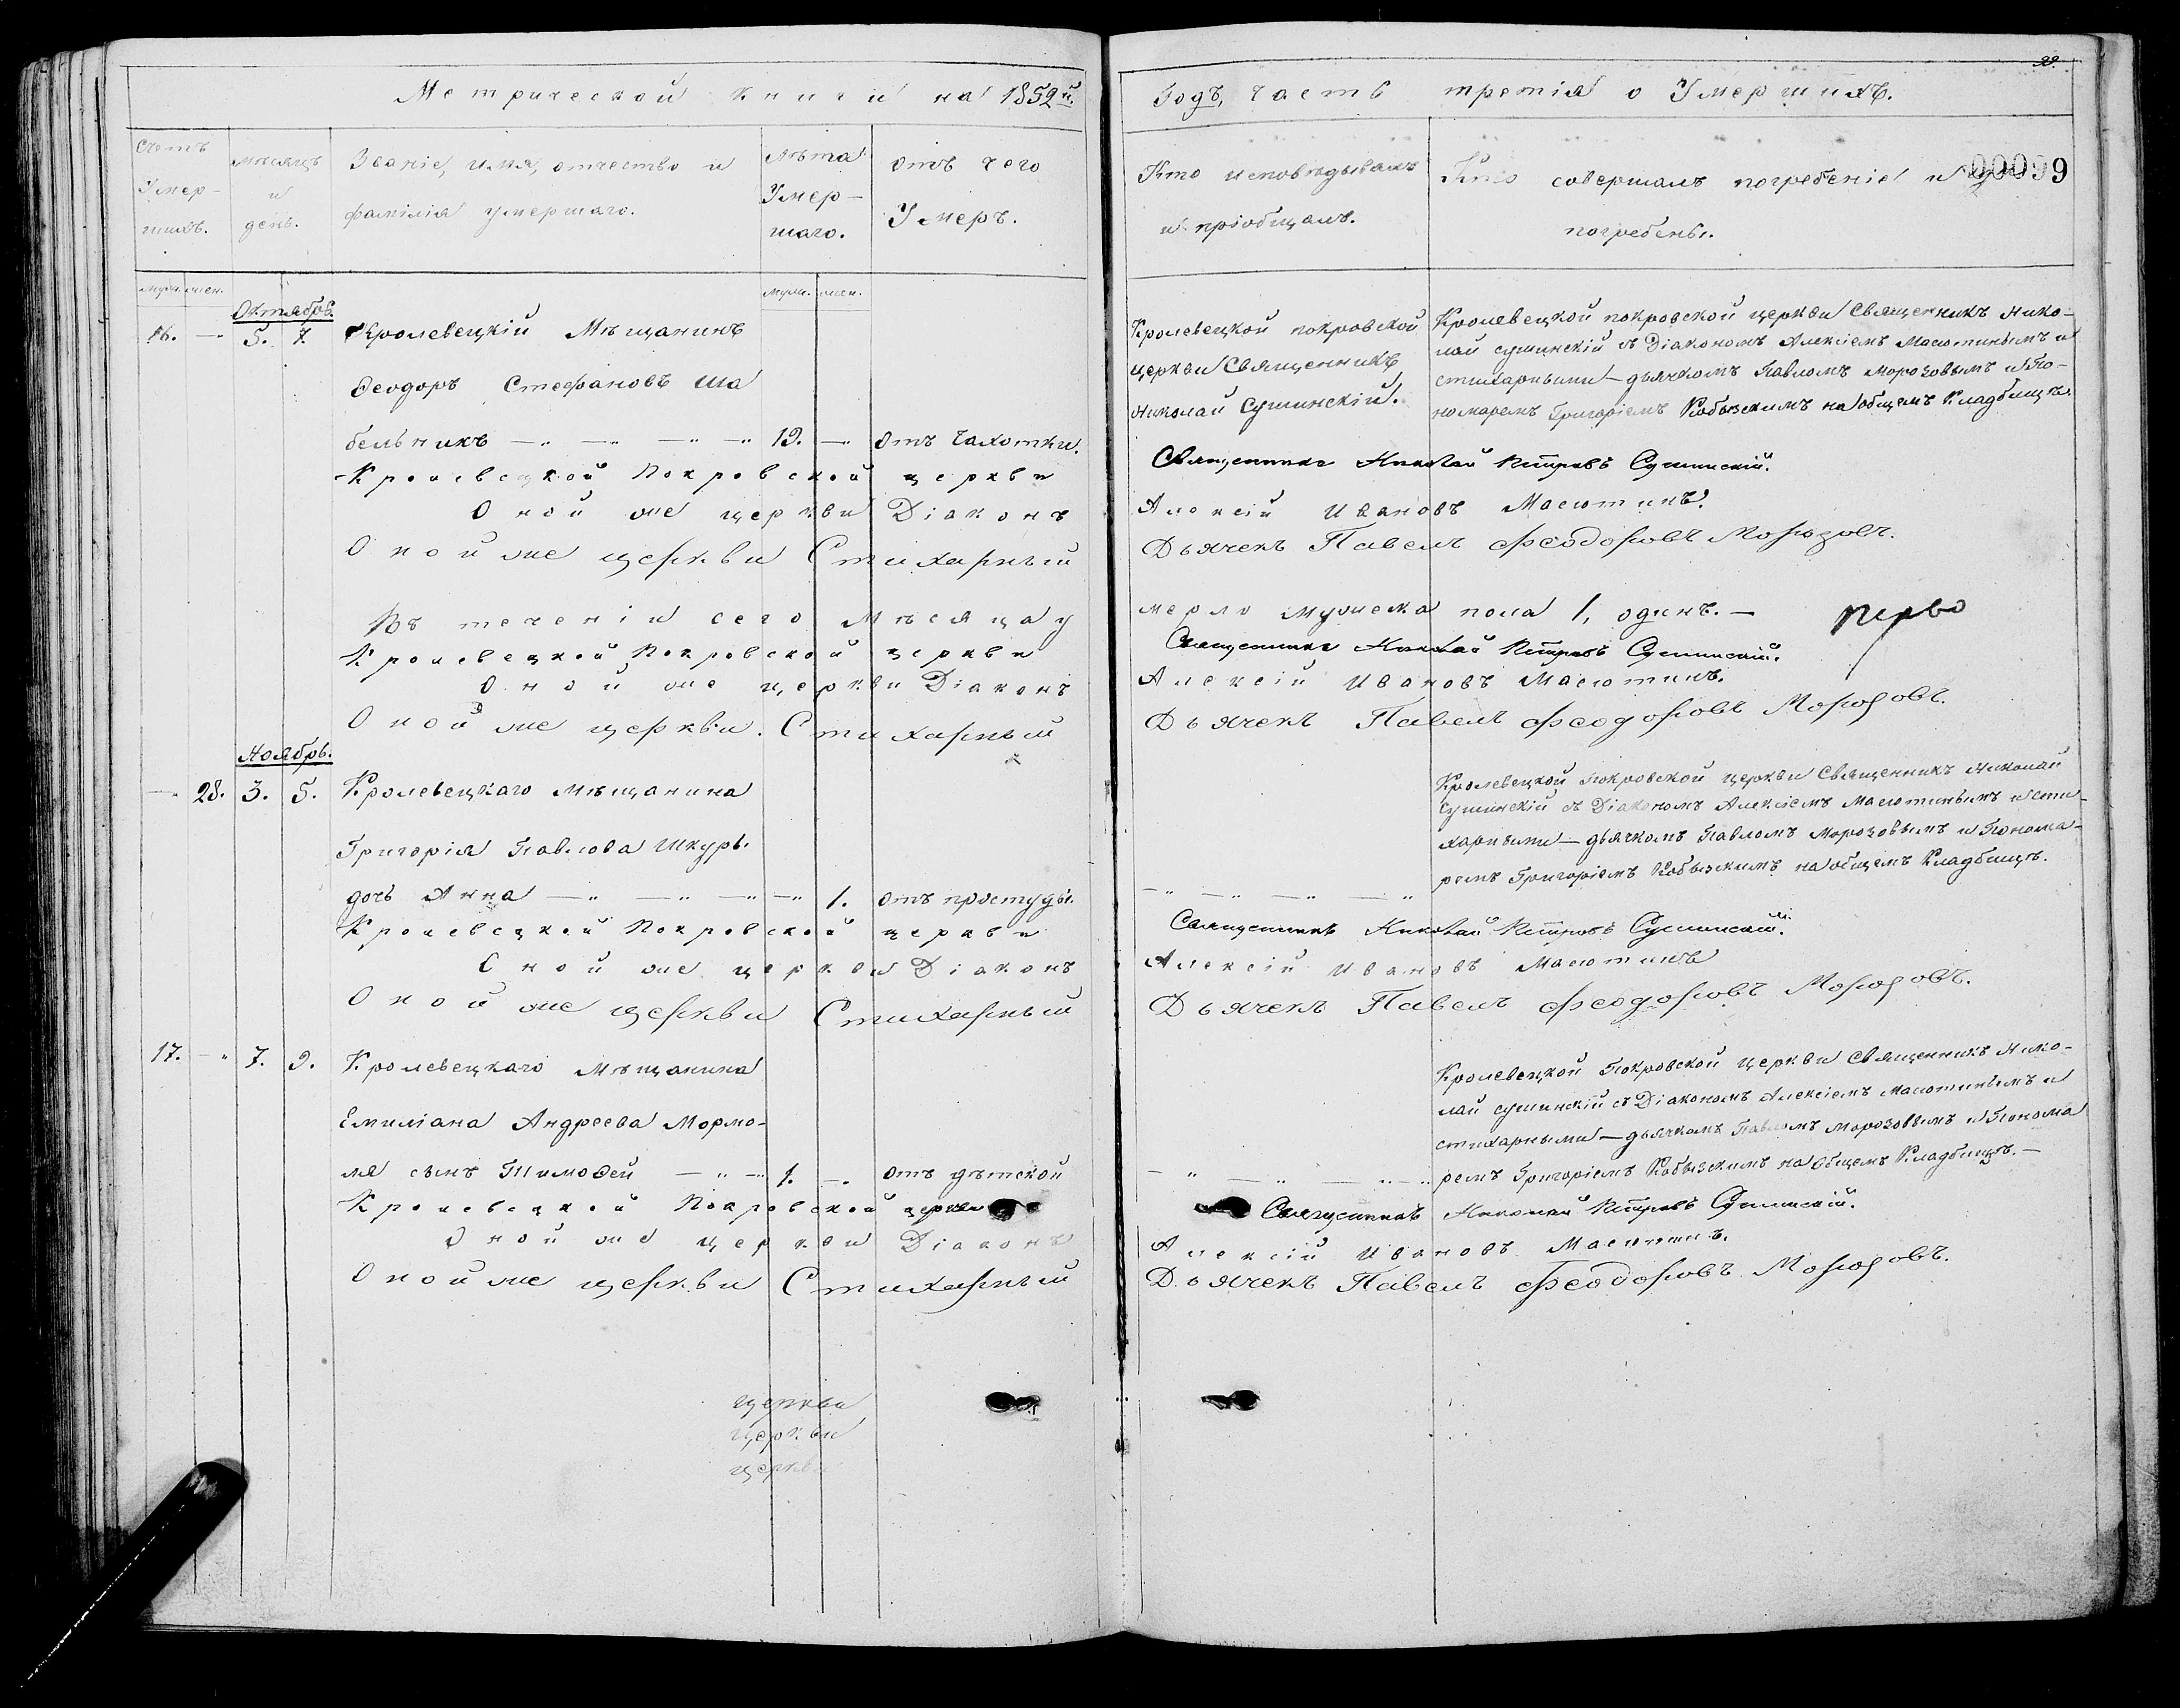 Метрической книги на 1852й.
Счетъ Умер-шихъ.
мѣсяцъ и день.
Званіе, имя, отчество и фамилія умершаго.
Лѣта Умер-шаго.
отъ чего Умеръ.
муж. жен.
муж. жен.
Октябрь.
16. — 5. 7. Кролевецкій Мѣщанинъ
Ѳеодоръ Стефановъ Ша
бельникъ — — — — 19. — отъ чахотки.
Кролевецкой Покровской церкви
Оной же церкви Діаконъ
Оной же церкви Стихарный
Въ теченіи сего Мѣсяца у
Кролевецкой Покровской церкви
Оной же церкви Діаконъ
Оной же церкви. Стихарный
Ноябрь.
— 28. 3. 5. Кролевецкаго Мѣщанина
Григорія Павлова Шкуры
дочь Анна — — — — 1. отъ простуды.
Кролевецкой Покровской церкви
Оной же церкви Діаконъ
Оной же церкви Стихарный
17. — 7. 9. Кролевецкаго Мѣщанина
Емиліана Андреева Мормо-
ля сынъ Тимоѳей — — 1. — отъ дѣтской
Кролевецкой Покровской церкви
Оной же церкви Діаконъ
Оной же церкви Стихарный
церкви
церкви
церкви
Годъ, часть третія о Умершихъ.
Кто исповѣдывалъ и пріобщалъ.
Кто совершалъ погребеніе и
погребены.
00099
Кролевецкой покровской
церкви Священникъ
Николай Сушинскій.
Кролевецкой покровской церкви Священникъ Нико-
лай сушинскій съ Діакономъ Алексіемъ Масютинымъ и
стихарными — дьячкомъ Павломъ Морозовымъ и По-
номаремъ Григоріемъ Кобызскимъ на общемъ Кладбищѣ.
Священникъ Николай Петровъ Сушинскій.
Алексій Ивановъ Масютинъ.
Дьячекъ Павелъ Феодоровъ Морозовъ.
мерло мужеска пола 1, одинъ. —
Священникъ Николай Петровъ Сушинскій.
Алексій Ивановъ Масютинъ.
Дьячекъ Павелъ Феодоровъ Морозовъ.
Кролевецкой Покровской церкви Священникъ Николай
Сушинскій съ Діакономъ Алексіемъ Масютинымъ и сти-
харными — дьячкомъ Павломъ Морозовымъ и Понома-
ремъ Григоріемъ Кобызскимъ на общемъ Кладбищѣ.
Священникъ Николай Петровъ Сушинскій.
Алексій Ивановъ Масютинъ
Дьячекъ Павелъ Феодоровъ Морозовъ.
Кролевецкой Покровской церкви Священникъ Нико-
лай сушинскій съ Діакономъ Алексіемъ Масютинымъ и
стихарными — дьячкомъ Павломъ Морозовымъ и Понома
ремъ Григоріемъ Кобызскимъ на общемъ Кладбищѣ. —
Священникъ Николай Петровъ Сушинскій.
Алексій Ивановъ Масютинъ.
Дьячекъ Павелъ Феодоровъ Морозовъ.